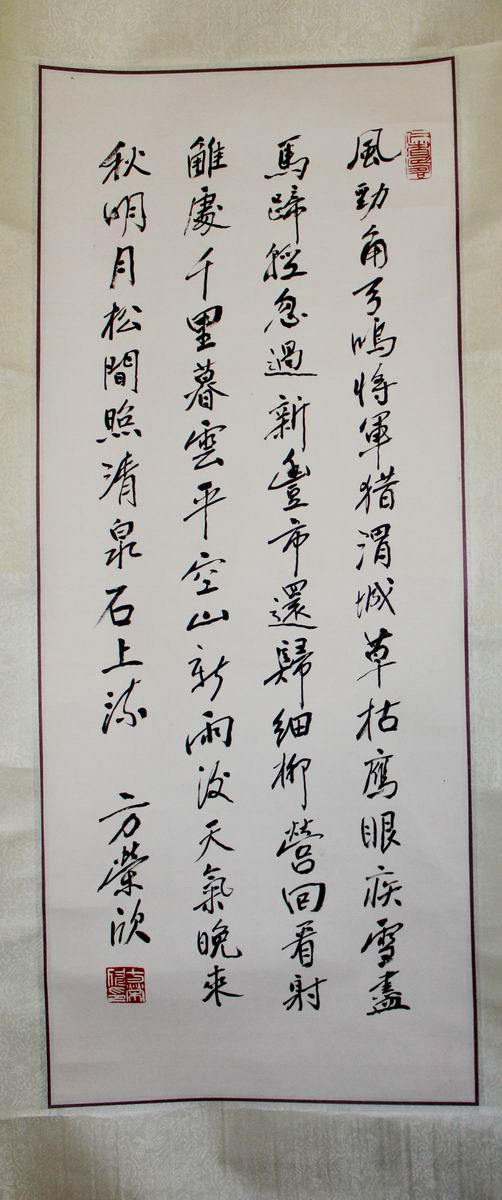 風勁角弓鳴将軍猎渭城草枯鷹眼疾雪盡
馬蹄輕忽過新豐市還歸細柳營回看射
雕處千里暮雲平空山新雨後天氣晚来
秋明月松間照清泉石上流
方榮欣